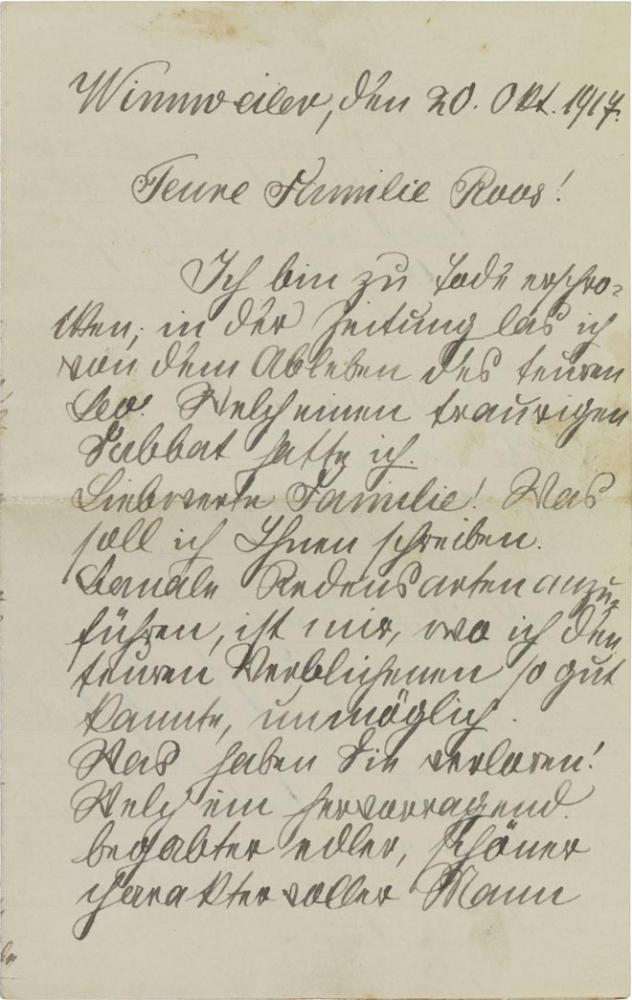 Winnweiler, den 20. Okt. 1917.
Teure Familie Roos!
Ich bin zu Tode erschro=
cken; in der Zeitung las ich
von dem Ableben des teuren
Leo. Welch einen traurigen
Sabbat hatte ich.
Liebwerte Familie! Was
soll ich Ihnen schreiben.
banale Redensarten anzu=
führen, ist mir, wo ich den
teuren Verblichenen so gut
kannte, unmöglich.
Was haben Sie verloren!
Welch ein hervorragend
begabter edler, schöner
charaktervoller Mann